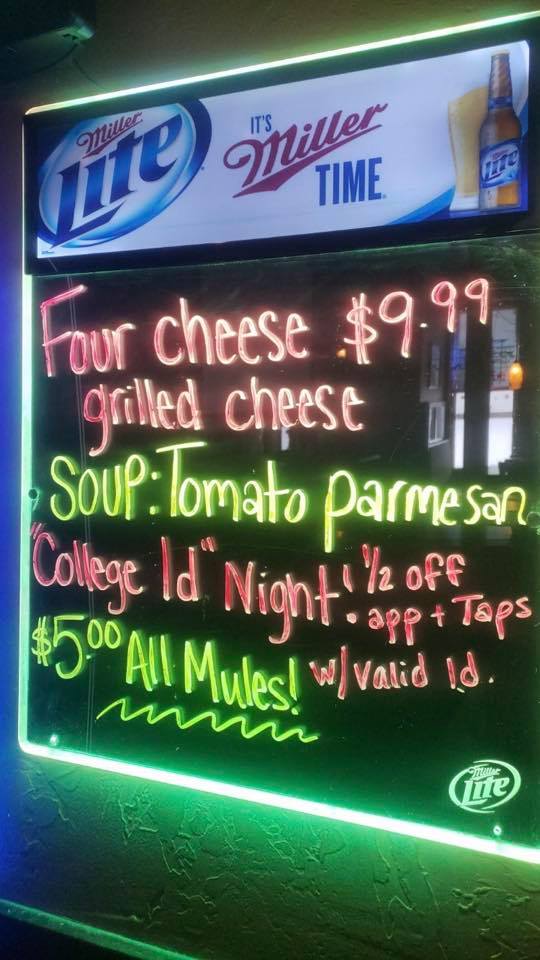 Miller
Lite
IT'S
Miller
TIME
Lite
Four cheese $9.99
grilled cheese
Soup: Tomato parmesan
"College Id" Night! 1/2 off
app + Taps
$5.00 All Mules! w/valid id.
Miller
Lite